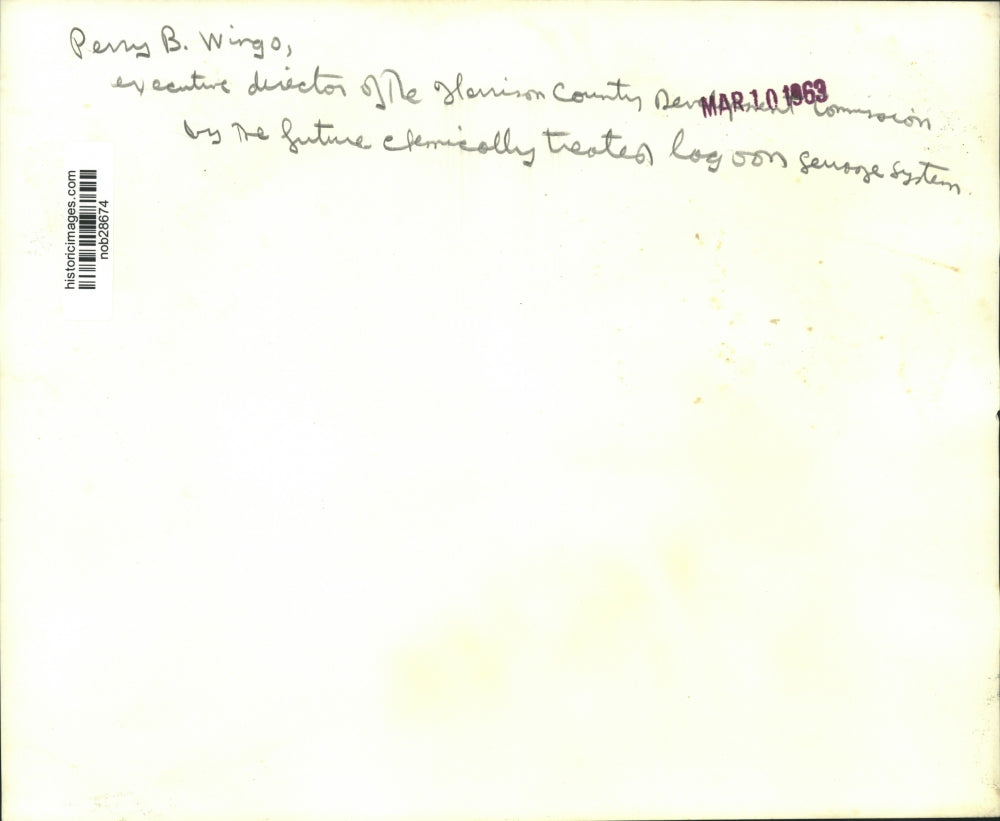 Perry B. Wingo,
executive director of the Harrison County Development Commission
MAR 10 1963
by the future chemically treated lagoon sewage system
historicimages.com
nob28674